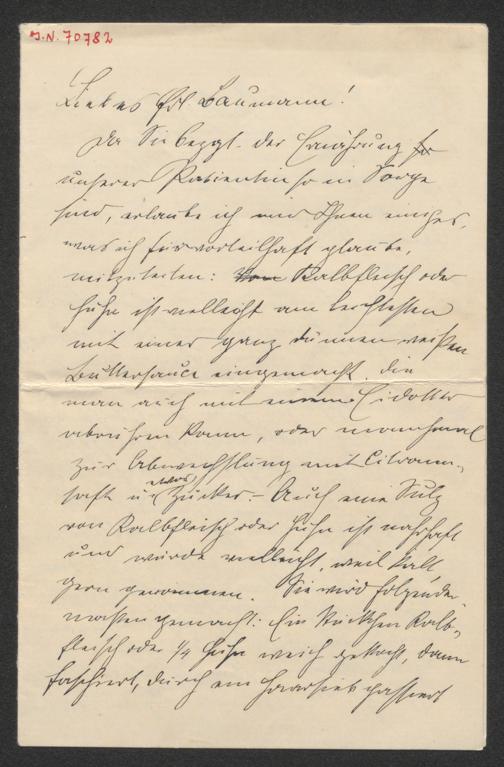 J.N. 70782
Liebes Frl Baumann!
Da Sie bezgl. der Ernährung
unserer Patientin so in Sorge
sind, erlaube ich mir Ihnen einiges,
was ich für vorteilhaft glaube,
mitzuteilen: Kalbfleisch oder
Huhn ist vielleicht am leichtesten
mit einer ganz dünnen weißen
Buttersauce eingemacht, die
man auch mit einem Eidotter
abrühren kann, oder manchmal
zur Abwechslung mit Citronen-
saft u. etwas Zucker. – Auch eine Sulz
von Kalbfleisch oder Huhn ist nahrhaft
und würde vielleicht, weil kalt
gern genommen. Sie wird folgender-
maßen gemacht: Ein Stückchen Kalb-
fleisch oder 1/4 Huhn weich gekocht, dann
faschiert, durch ein Haarsieb passiert